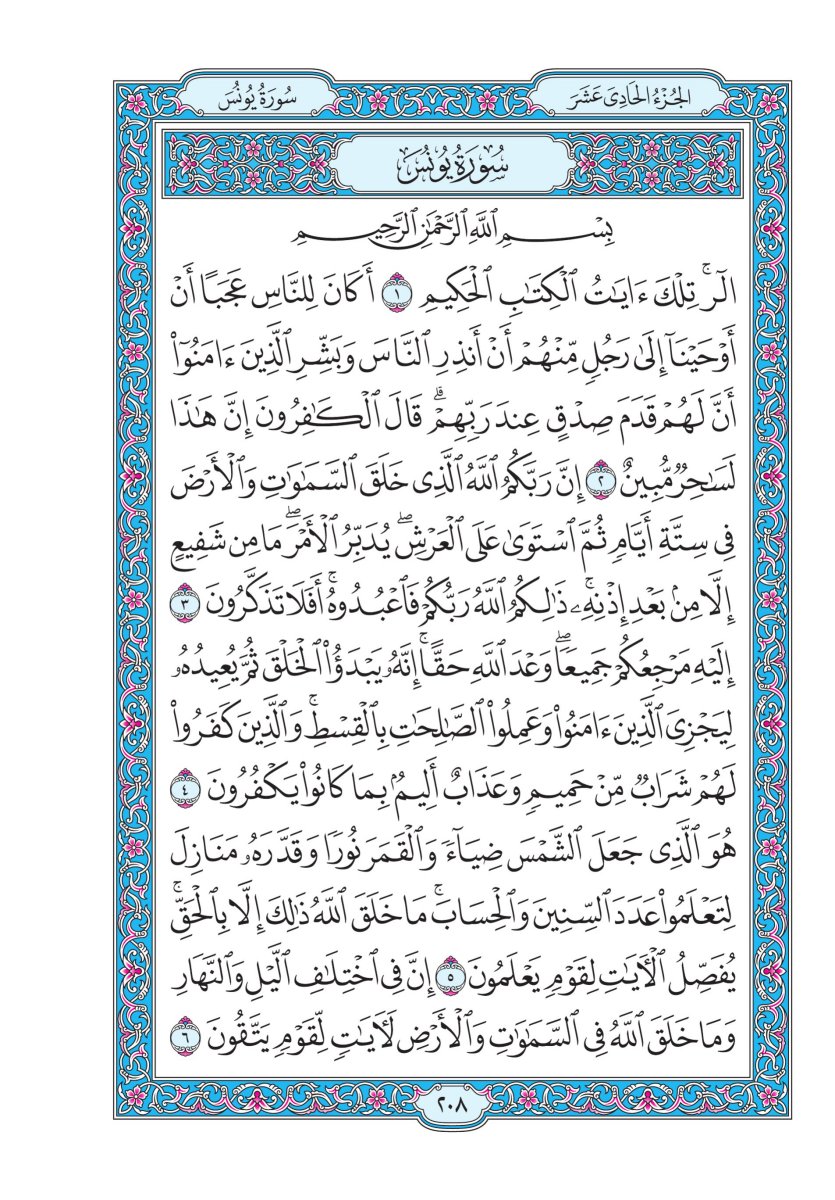 الجُزْءُ الحَادِى عَشَرَ
سُورَةُ يُونُسَ
سُورَةُ يُونُسَ
بِسْمِ ٱللَّهِ ٱلرَّحْمَٰنِ ٱلرَّحِيمِ
الٓرۚ تِلْكَ ءَايَٰتُ ٱلْكِتَٰبِ ٱلْحَكِيمِ ١ أَكَانَ لِلنَّاسِ عَجَبًا أَنْ
أَوْحَيْنَآ إِلَىٰ رَجُلٍ مِّنْهُمْ أَنْ أَنذِرِ ٱلنَّاسَ وَبَشِّرِ ٱلَّذِينَ ءَامَنُوٓا۟
أَنَّ لَهُمْ قَدَمَ صِدْقٍ عِندَ رَبِّهِمْۗ قَالَ ٱلْكَٰفِرُونَ إِنَّ هَٰذَا
لَسَٰحِرٌ مُّبِينٌ ٢ إِنَّ رَبَّكُمُ ٱللَّهُ ٱلَّذِى خَلَقَ ٱلسَّمَٰوَٰتِ وَٱلْأَرْضَ
فِى سِتَّةِ أَيَّامٍ ثُمَّ ٱسْتَوَىٰ عَلَى ٱلْعَرْشِۖ يُدَبِّرُ ٱلْأَمْرَۖ مَا مِن شَفِيعٍ
إِلَّا مِنۢ بَعْدِ إِذْنِهِۦۚ ذَٰلِكُمُ ٱللَّهُ رَبُّكُمْ فَٱعْبُدُوهُۚ أَفَلَا تَذَكَّرُونَ ٣
إِلَيْهِ مَرْجِعُكُمْ جَمِيعًاۖ وَعْدَ ٱللَّهِ حَقًّاۚ إِنَّهُۥ يَبْدَؤُا۟ ٱلْخَلْقَ ثُمَّ يُعِيدُهُۥ
لِيَجْزِىَ ٱلَّذِينَ ءَامَنُوا۟ وَعَمِلُوا۟ ٱلصَّٰلِحَٰتِ بِٱلْقِسْطِۚ وَٱلَّذِينَ كَفَرُوا۟
لَهُمْ شَرَابٌ مِّنْ حَمِيمٍ وَعَذَابٌ أَلِيمٌۢ بِمَا كَانُوا۟ يَكْفُرُونَ ٤
هُوَ ٱلَّذِى جَعَلَ ٱلشَّمْسَ ضِيَآءً وَٱلْقَمَرَ نُورًا وَقَدَّرَهُۥ مَنَازِلَ
لِتَعْلَمُوا۟ عَدَدَ ٱلسِّنِينَ وَٱلْحِسَابَۚ مَا خَلَقَ ٱللَّهُ ذَٰلِكَ إِلَّا بِٱلْحَقِّۚ
يُفَصِّلُ ٱلْأٓيَٰتِ لِقَوْمٍ يَعْلَمُونَ ٥ إِنَّ فِى ٱخْتِلَٰفِ ٱلَّيْلِ وَٱلنَّهَارِ
وَمَا خَلَقَ ٱللَّهُ فِى ٱلسَّمَٰوَٰتِ وَٱلْأَرْضِ لَأٓيَٰتٍ لِّقَوْمٍ يَتَّقُونَ ٦
٢٠٨